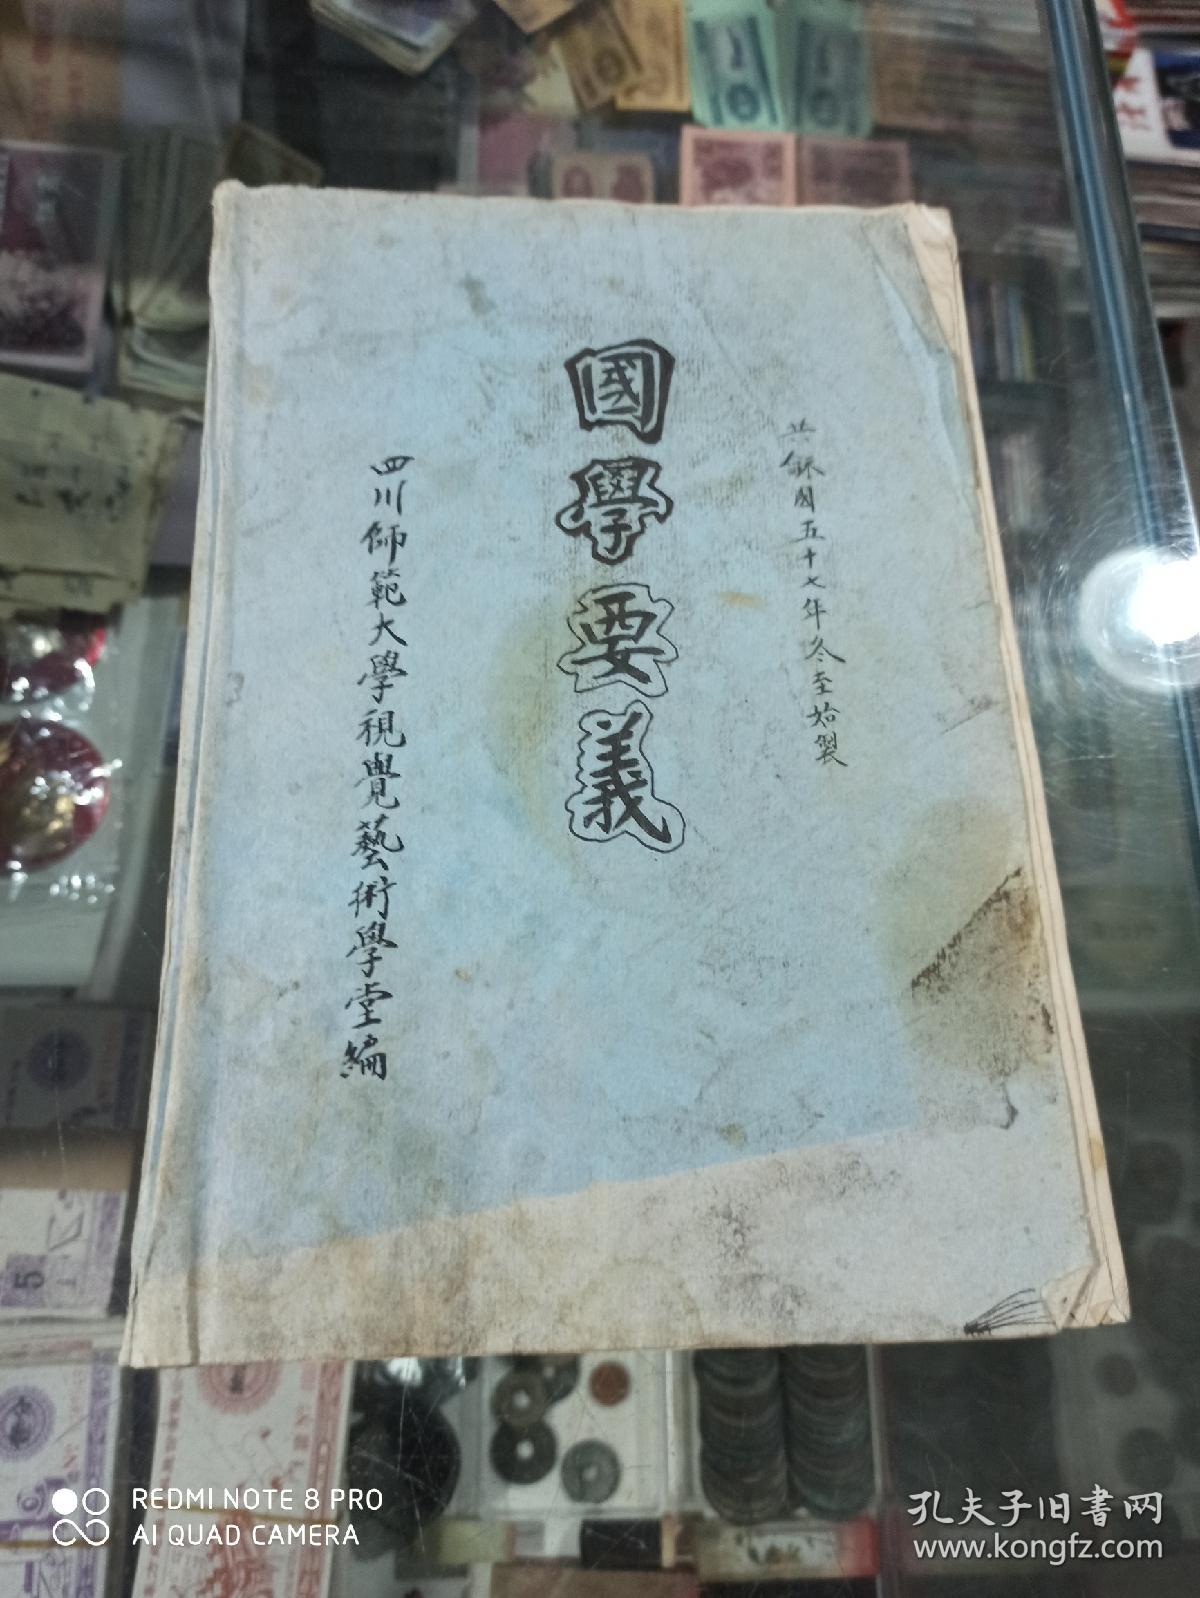 共龢國五十七年冬至始製
國學要義
四川師範大學視覺藝術學堂編
5
REDMI NOTE 8 PRO
AI QUAD CAMERA
孔夫子旧書网
www.kongfz.com